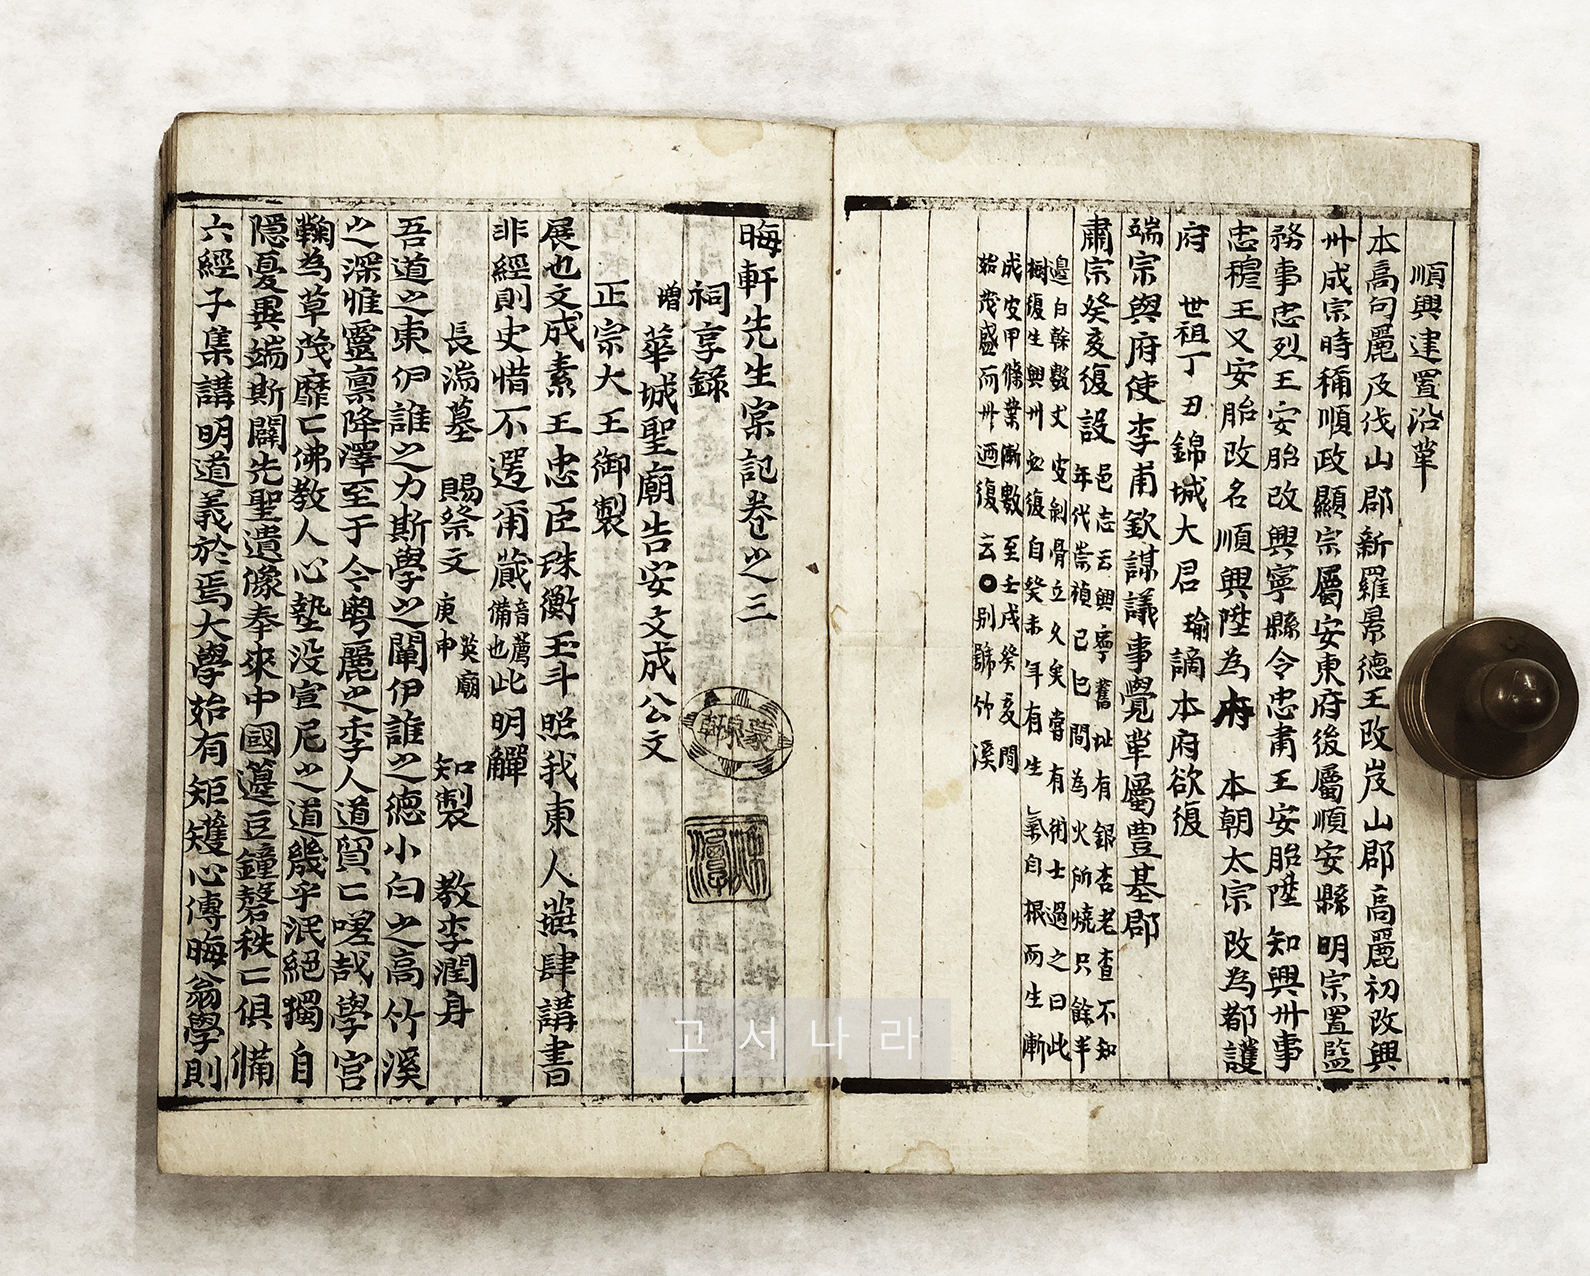 順興建置沿革
本高句麗及伐山郡新羅景德王改岌山郡高麗初改興
州成宗時稱順政顯宗屬安東府後屬順安縣明宗置監
務事忠烈王安胎改興寧縣令忠肅王安胎陞知興州事
忠穆王又安胎改名順興陞為府 本朝太宗改為都護
府 世祖丁丑錦城大君瑜謫本府欲復
端宗與府使李甫欽謀議事覺革屬豊基郡
肅宗癸亥復設
邑志云興寧舊址有銀杏老査不知
年代崇禎己巳間為火所燒只餘半
邊白幹數丈皮剝骨立久矣嘗有術士過之曰此
樹復生興州必復自癸未年有生氣自根而生漸
成皮甲條葉漸數至壬戌癸亥間
始茂盛而州廼復云○別號竹溪
晦軒先生宲記卷之三
祠享錄
增 華城聖廟告安文成公文
正宗大王御製
展也文成素王忠臣珠衡玉斗照我東人蕪肆講書
非經則史惜不遌甭蕆
音薦
備也
此明觶
長湍墓 賜祭文
英廟
庚申
知製 教李潤身
吾道之東伊誰之力斯學之闡伊誰之德小白之高竹溪
之深惟靈禀降澤至于今粤麗之季人道貿亡嗟哉學宫
鞠為草茂靡亡佛教人心墊没宣尼之道幾乎泯絕獨自
隱憂異端斯闢先聖遺像奉來中國籩豆鐘磬秩亡俱備
六經子集講明道義於焉大學始有矩矱心傳晦翁學則
고서나라